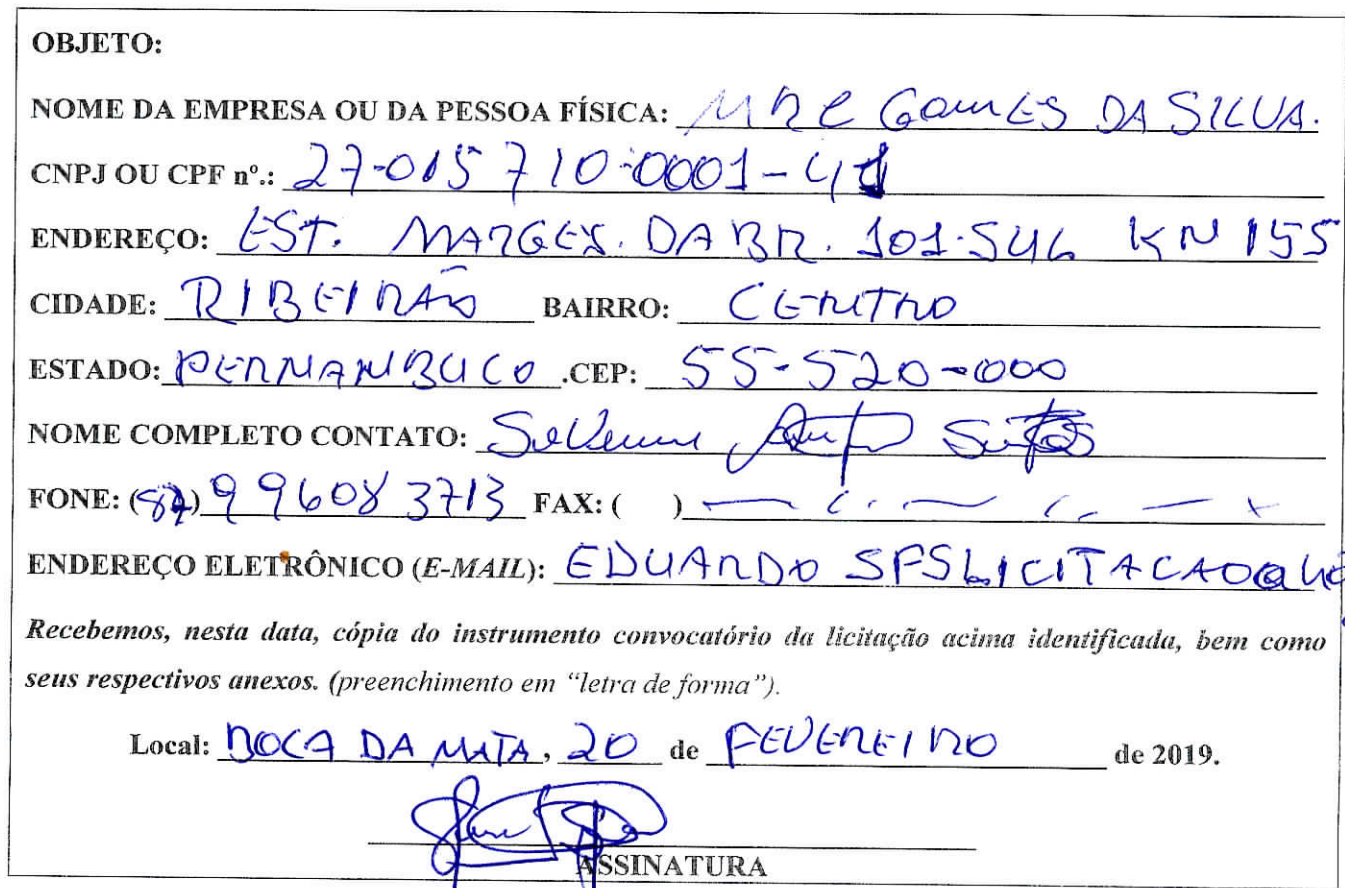 OBJETO:
NOME DA EMPRESA OU DA PESSOA FÍSICA: MRC GOMES DA SILVA.
CNPJ OU CPF nº.: 27-015710-0001-41
ENDEREÇO: EST. MARGEX. DA BR. 101-SUL KN 155
CIDADE: RIBEIRÃO BAIRRO: CENTRO
ESTADO: PERNAMBUCO .CEP: 55-520-000
NOME COMPLETO CONTATO:
FONE: (82) 9 9608 3713 FAX: ( )
ENDEREÇO ELETRÔNICO (E-MAIL): EDUARDO SFSLICITACAO@
Recebemos, nesta data, cópia do instrumento convocatório da licitação acima identificada, bem como
seus respectivos anexos. (preenchimento em “letra de forma”).
Local: BOCA DA MATA, 20 de FEVEREIRO de 2019.
ASSINATURA